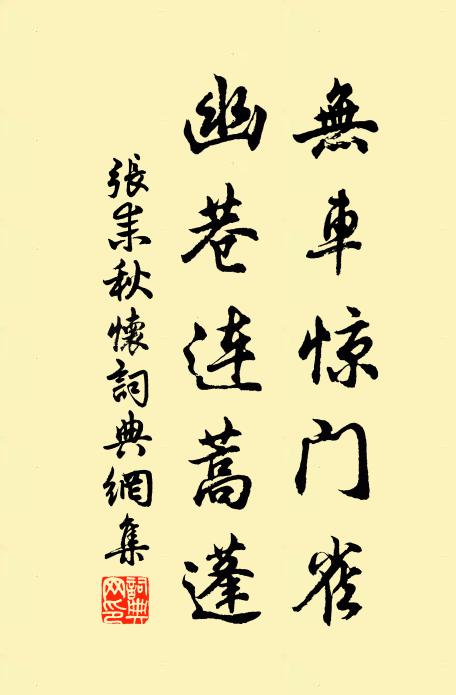 無車惊门雀
幽巷連蒿蓬
張耒秋懷詞典網集
詞典
网印